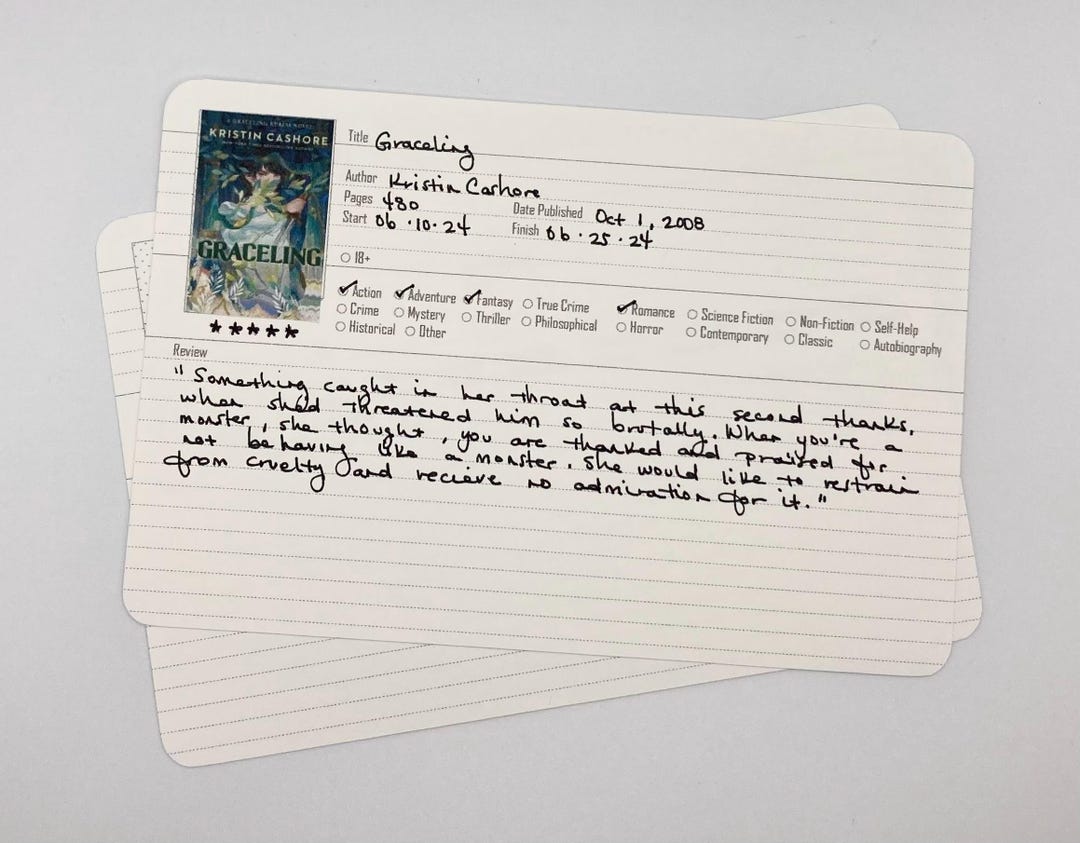 A GRACELING REALM NOVEL
KRISTIN CASHORE
NEW YORK TIMES BESTSELLING AUTHOR
GRACELING
★★★★★
Title Graceling
Author Kristin Cashore
Pages 480 Date Published Oct 1, 2008
Start 06.10.24 Finish 06.25.24
18+
Action Adventure Fantasy True Crime Romance Science Fiction Non-Fiction Self-Help
Crime Mystery Thriller Philosophical Horror Contemporary Classic Autobiography
Historical Other
Review
"Something caught in her throat at this second thanks,
when she'd threatened him so brutally. When you're a
monster, she thought, you are thanked and praised for
not behaving like a monster. She would like to restrain
from cruelty and recieve no admiration for it."